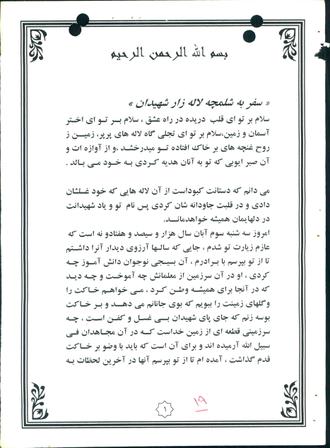 بسم الله الرحمن الرحیم
« سفر به شلمچه لاله زار شهیدان »
سلام بر تو ای قلب دریده در راه عشق ، سلام بر تو ای اختر
آسمان و زمین،سلام بر تو ای تجلی گاه لاله های پرپر، زمین ز
روح غنچه های بر خاک افتاده تو میدرخشد ،و از آوازه ات و
آن صبر ایوبی که تو به آنان هدیه کردی به خود می بالد .
می دانم که دستانت کبوداست از آن لاله هایی که خود غسلشان
دادی و در قلبت جاودانه شان کردی پس نام تو و یاد شهیدانت
در دلهایمان همیشه خواهدماند.
امروز سه شنبه سوم آبان سال هزار و سیصد و هفتادو نه است که
عازم زیارت تو شدم ، جایی که سالها آرزوی دیدار آنرا داشتم
تا از تو بپرسم با برادرم ، آن بسیجی نوجوان دانش آموز چه
کردی ، او در آن سرزمین از معلمانش چه آموخت و چه دید
که در آنجا برای همیشه وطن کرد . می خواهم خاکت را
وگلهای زمینت را ببویم که بوی جانانم می دهد و بر خاکت
بوسه زنم که جای پای شهیدان بی غسل و کفن است ، چه
سرزمینی قطعه ای از زمین خداست کـه در آن مجاهدان فی
سبیل الله آرمیده اند و برای آن است که باید با وضو بر خاکت
قدم گذاشت ، آمده ام تا از تو بپرسم آنها در آخرین لحظات به
۱
۱۹